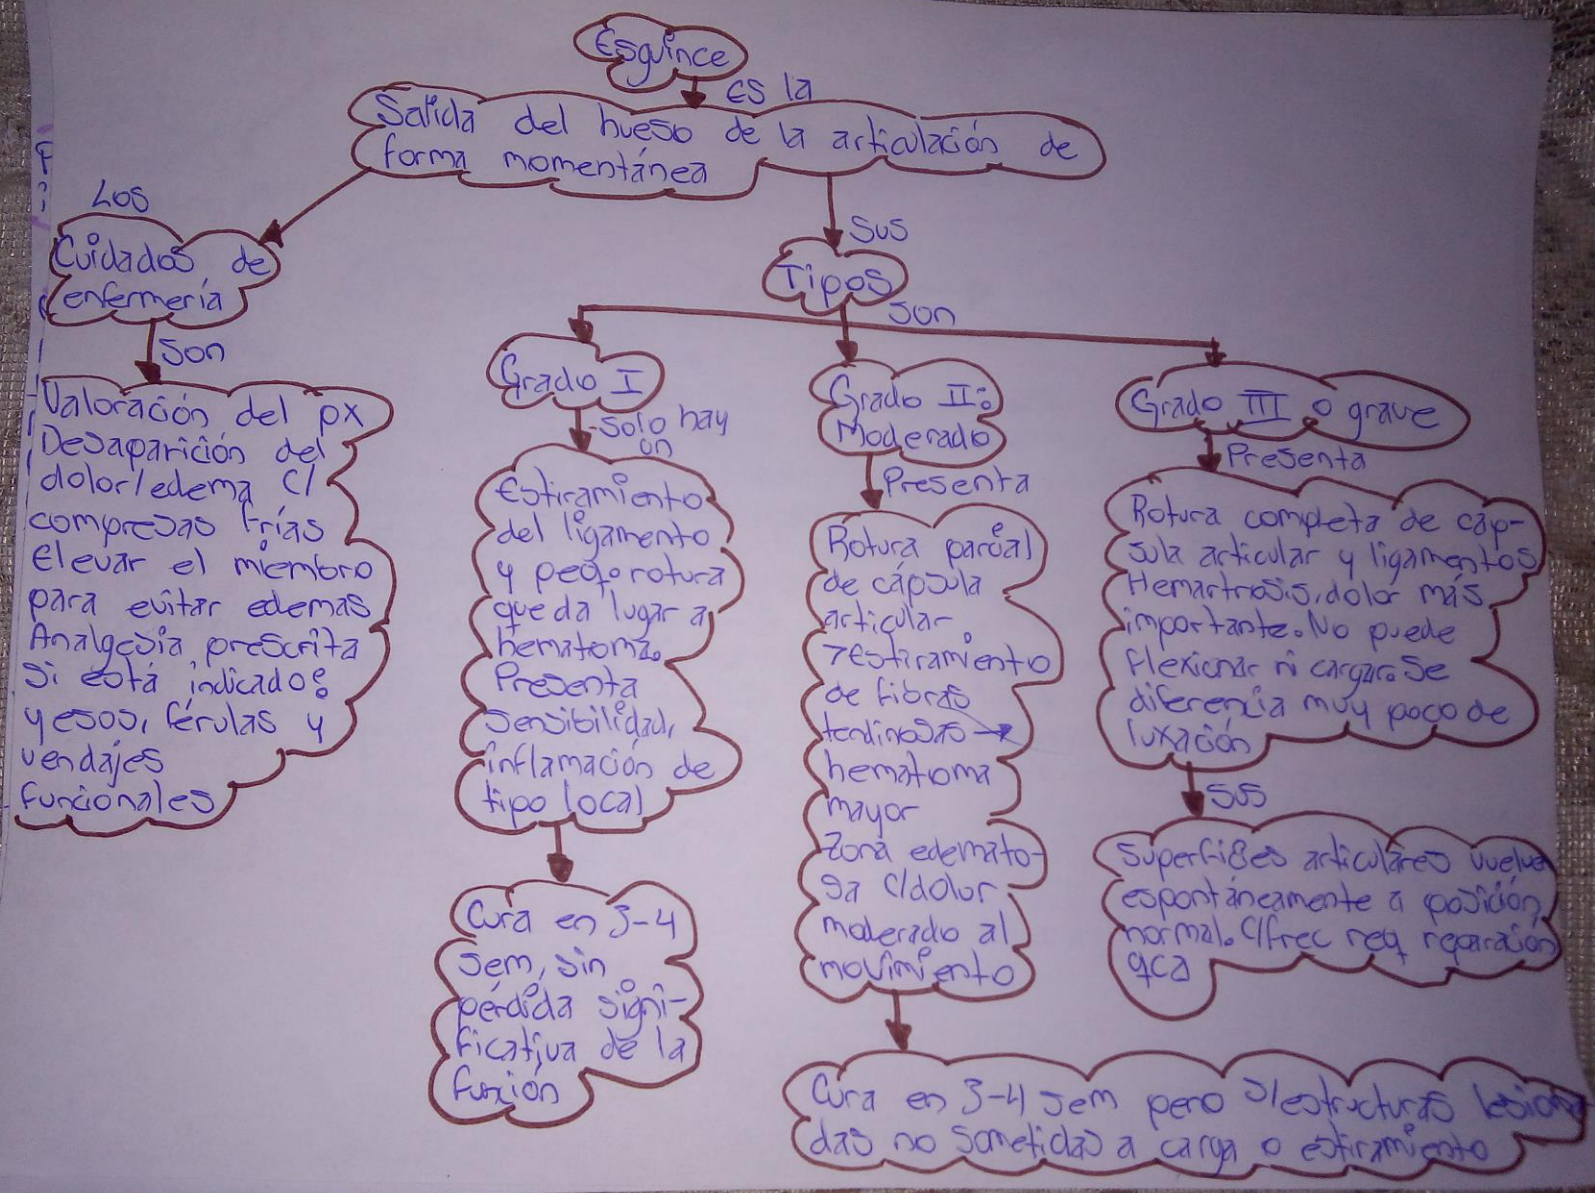 Esguince
es la
Salida del hueso de la articulación de
forma momentánea
Los
Cuidados de
enfermería
son
Valoración del px
Desaparición del
dolor/edema c/
compresas frías
Elevar el miembro
para evitar edemas
Analgesia prescrita
Si está indicado:
yesos, férulas y
vendajes
funcionales
sus
Tipos
son
Grado I
solo hay
un
Estiramiento
del ligamento
y peq. rotura
que da lugar a
hematoma.
Presenta
sensibilidad,
inflamación de
tipo local
Cura en 3-4
sem, sin
pérdida signi-
ficativa de la
función
Grado II:
Moderado
Presenta
Rotura parcial
de cápsula
articular
estiramiento
de fibras
tendinosas →
hematoma
mayor
Zona edemato-
sa c/dolor
moderado al
movimiento
Cura en 3-4 sem pero s/estructuras lesiona
das no sometidas a carga o estiramiento
Grado III o grave
Presenta
Rotura completa de cáp-
sula articular y ligamentos
Hemartrosis, dolor más
importante. No puede
flexionar ni cargar. Se
diferencia muy poco de
luxación
sus
Superficies articulares vuelve
espontáneamente a posición
normal. C/frec req reparación
qca